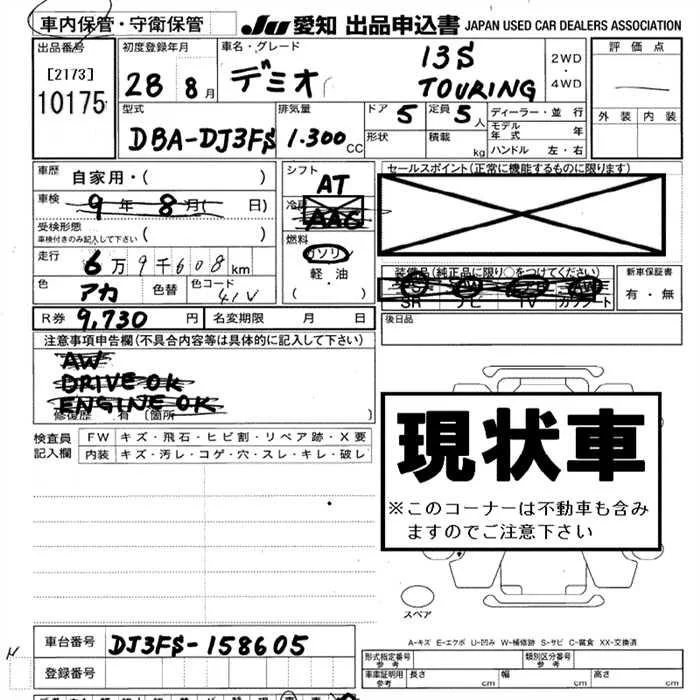 車内保管・守衛保管 JU 愛知 出品申込書 JAPAN USED CAR DEALERS ASSOCIATION
出品番号 初度登録年月 車名・グレード 13S 2WD・4WD 評価点
[2173] 10175 28 8月 デミオ TOURING
外装 内装
型式 DBA-DJ3FS 排気量 1.300 CC ドア 5 定員 5人 ディーラー・並行
形状 積載 kg モデル年式 年
ハンドル 左・右
車歴 自家用・( ) シフト AT セールスポイント(正常に機能するものに限ります)
車検 9年 8月( 日) 冷房 AAC
受検形態 車検付きのみ記入して下さい ( ) 燃料 ガソリン
走行 6万9千608km 軽・油 装備品(純正品に限り○をつけてください) 新車保証書
色 アカ 色替 色コード 41V ( ) PS AW SR ナビ TV カワシート 有・無
R券 9,730円 名変期限 月 日 後日品
注意事項申告欄(不具合内容等は具体的に記入して下さい)
AW
DRIVE OK
ENGINE OK
修復歴 有 [箇所 ]
現状車
※このコーナーは不動車も含み
ますのでご注意下さい
検査員記入欄 FW キズ・飛石・ヒビ割・リペア跡・X要
内装 キズ・汚レ・コゲ・穴・スレ・キレ・破レ
スペア
A-キズ E-エクボ U-凹み W-補修跡 S-サビ C-腐食 XX-交換済
車台番号 DJ3FS-158605 形式指定番号 参考 類別区分番号 参考
登録番号 車庫証明用 参考 長さ cm 幅 cm 高さ cm